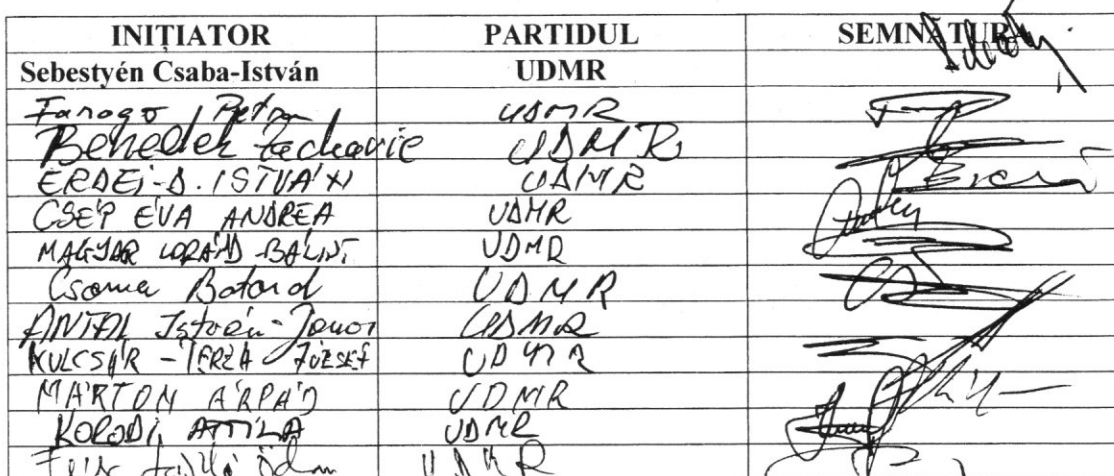 INIȚIATOR PARTIDUL SEMNĂTURA
Sebestyén Csaba-István UDMR
Faragó Petru UDMR
Benedek Zacharie UDMR
ERDEI-D. ISTVÁN UDMR
CSÉP ÉVA ANDREA UDMR
MAGYAR LORÁND-BÁLINT UDMR
Csoma Botond UDMR
ANTAL István-János UDMR
KULCSÁR-TERZA JÓZSEF UDMR
MÁRTON ÁRPÁD UDMR
KORODI ATTILA UDMR
UDMR